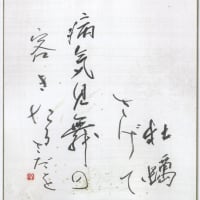 牡蠣
さげて
病気見舞の
客きたる
さだを